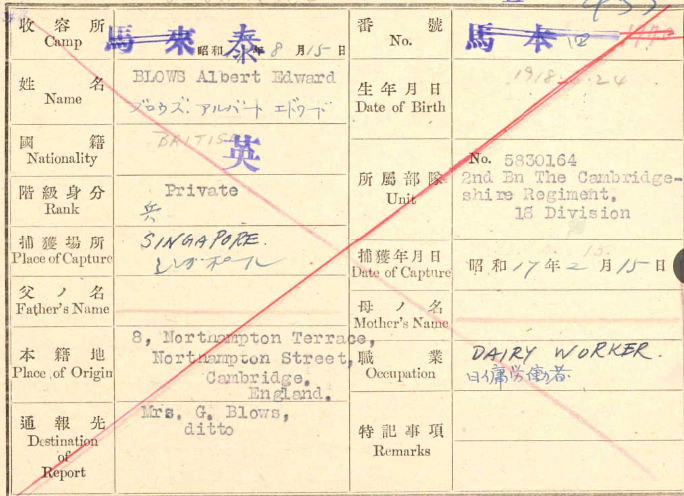 收容所
Camp
馬來 泰
昭和 年 8 月 15 日
番號
No.
馬本
姓名
Name
BLOWS Albert Edward
ブロウズ. アルバート エドワード
生年月日
Date of Birth
國籍
Nationality
BRITISH
英
階級身分
Rank
Private
兵
所屬部隊
Unit
No. 5830164
2nd Bn The Cambridge-
shire Regiment.
18 Division
捕獲場所
Place of Capture
SINGAPORE.
捕獲年月日
Date of Capture
昭和 17 年 2 月 15 日
父ノ名
Father's Name
母ノ名
Mother's Name
本籍地
Place of Origin
8, Northampton Terrace,
Northampton Street,
Cambridge,
England.
職業
Occupation
DAIRY WORKER.
通報先
Destination
of
Report
Mrs. G. Blows,
ditto
特記事項
Remarks